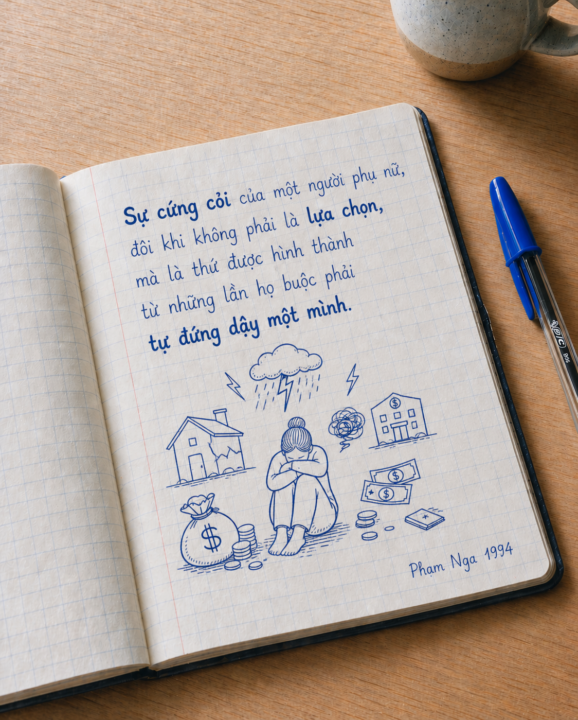 Sự cứng cỏi của một người phụ nữ,
đôi khi không phải là lựa chọn,
mà là thứ được hình thành
từ những lần họ buộc phải
tự đứng dậy một mình.
$
$
$
$
Phạm Nga 1994
BIC